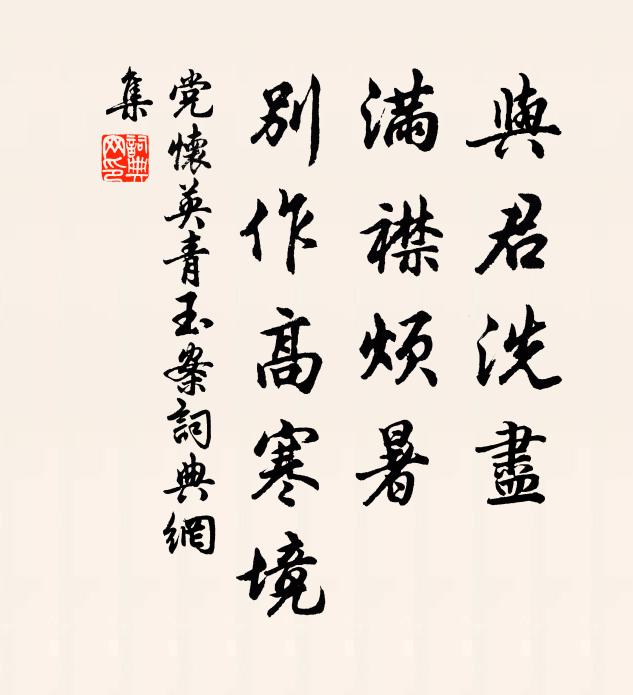 與君洗盡
滿襟煩暑
別作高寒境
党懷英青玉案詞典網
集
詞典
網印